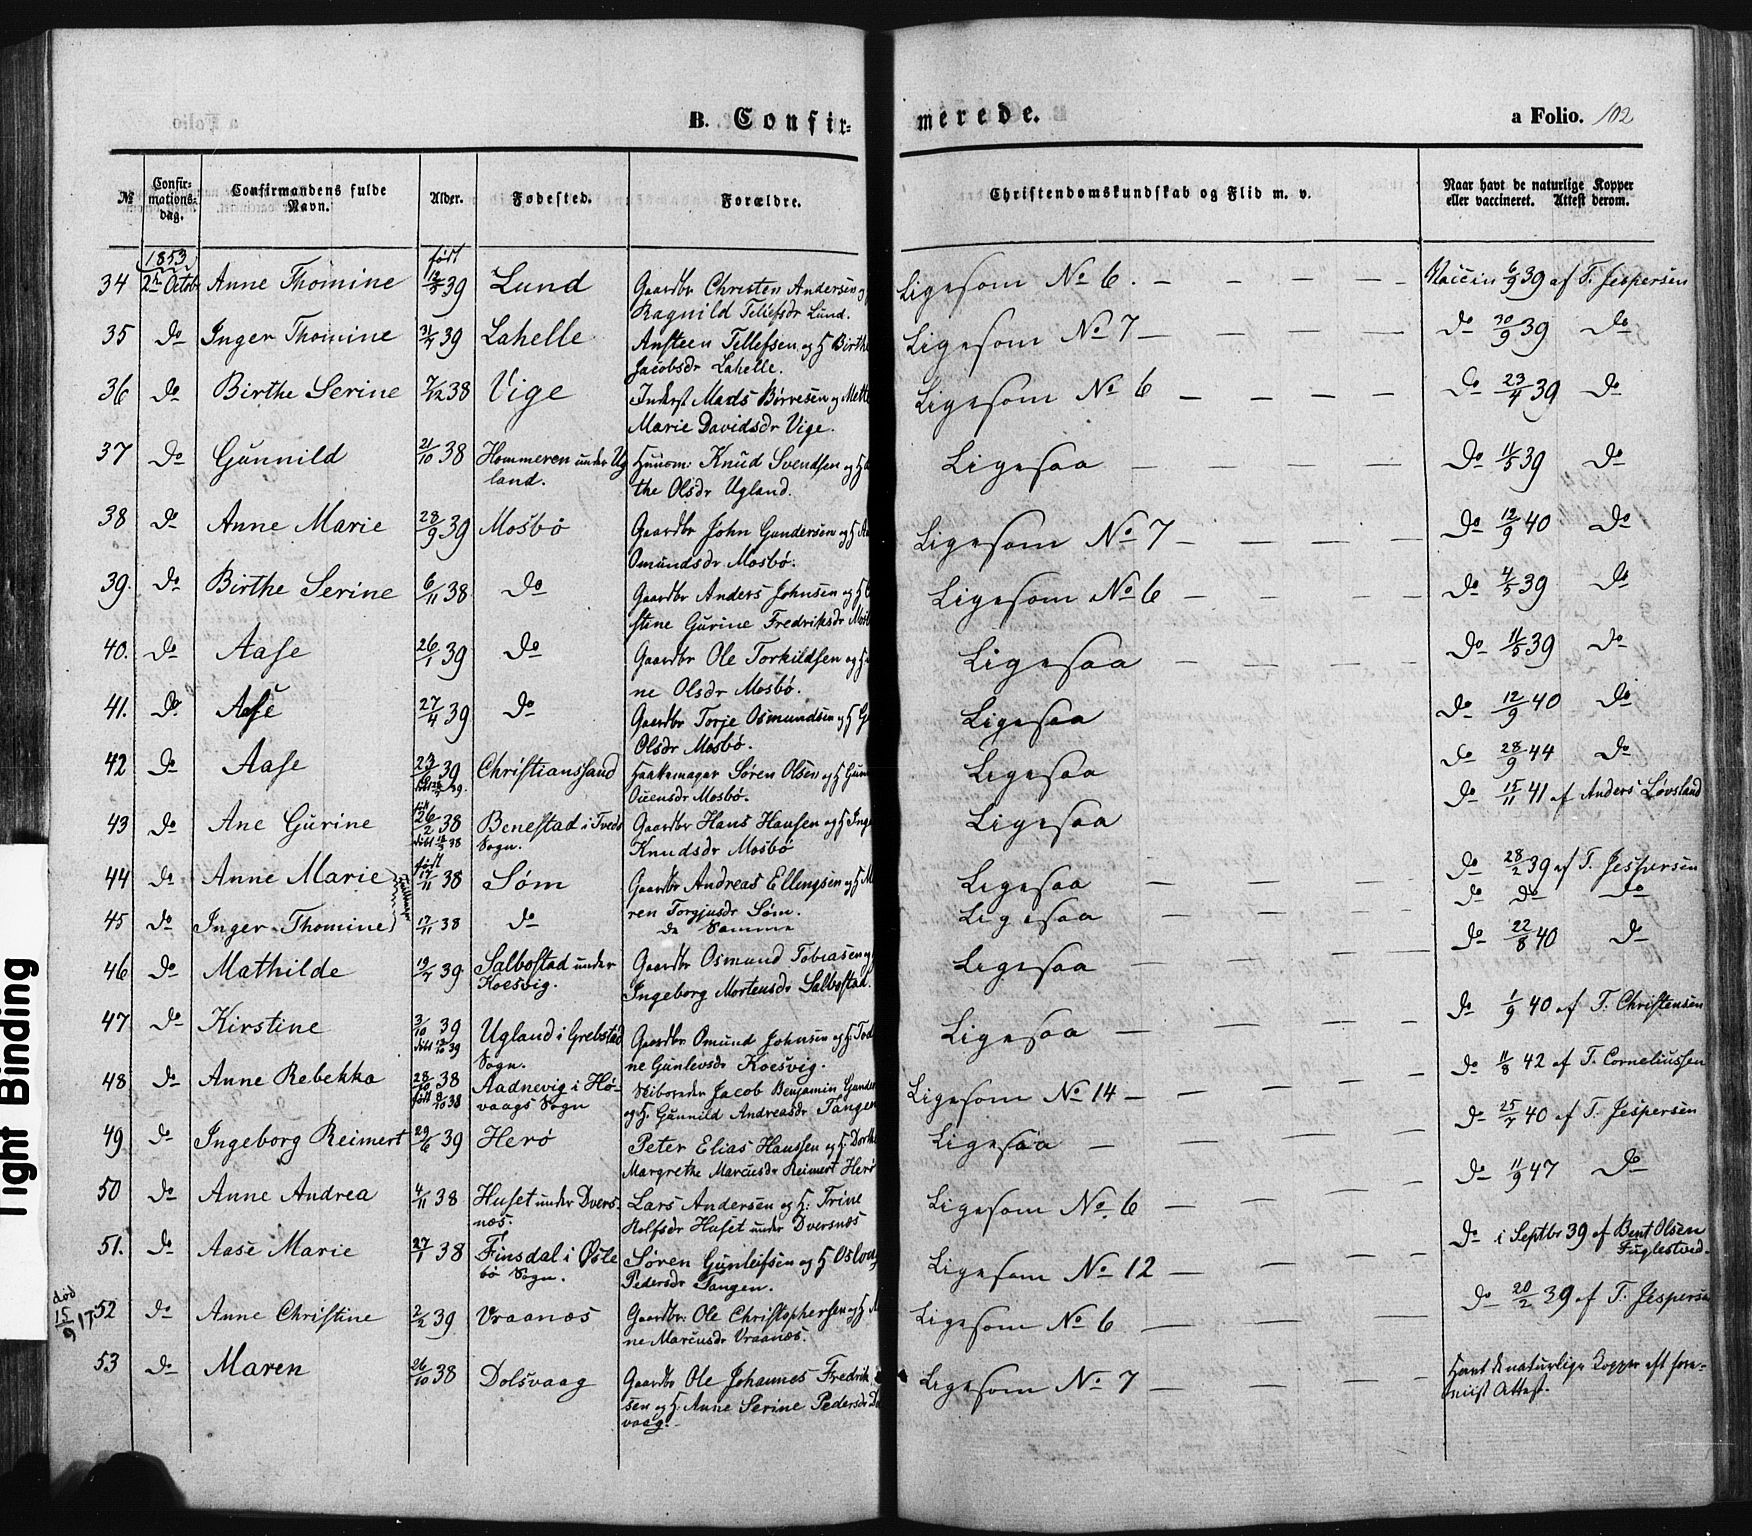 B. Confir=
merede.
a Folio. 102
№
Confir=
mations=
dag.
Confirmandens fulde
Navn.
Alder.
Fødested.
Forældre.
Christendomskundskab og Flid m. v.
Naar havt de naturlige Kopper
eller vaccineret. Attest derom.
1853
født
34 2den Octob Anne Thomine 12/3 39 Lund Gaardbr Christen Andersen og Ligesom No 6. - - - - Vaccin 6/9 39 af T. Jespersen
Ragnild Tellefsdr Lund.
35 Do Inger Thomine 31/7 39 Lahelle Ansteen Tellefsen og H Birthe Ligesom No 7 - - - - Do 30/9 39 Do
Jacobsdr Lahelle.
36 Do Birthe Serine 7/12 38 Vige Inderst Mads Børresen og Mette Ligesom No 6 - - - - Do 23/4 39 Do
Marie Davidsdr Vige.
37 Do Gunnild 21/10 38 Hommeren under Ug Huusm: Knud Svendsen og H Ligesaa - - - - Do 11/5 39 Do
land. the Olsdr Ugland.
38 Do Anne Marie 28/9 39 Mosbø Gaardbr John Gundersen og H Ligesom No 7 - - - - Do 12/9 40 Do
Omundsdr Mosbø.
39. Do Birthe Serine 6/11 38 Do Gaardbr Anders Johnsen og H Ligesom No 6 - - - - Do 4/5 39 Do
stine Gurine Fredriksdr Mosb
40. Do Aase 26/1 39 Do Gaardbr Ole Torkildsen og H Ligesaa - - - - Do 11/5 39 Do
ne Olsdr Mosbø.
41. Do Aase 27/4 39 Do Gaardbr Torje Osmundsen og H Ligesaa Do 12/9 40 Do
Olsdr Mosbø.
42 Do Aase 23/6 39 Christianssand Søren Olsen og H Gun Ligesaa Do 28/9 44 Do
Mosbø.
43 Do Ane Gurine 26/2 38 Benestad i Tveds Gaardbr Hans Hansen og H Inge Ligesaa Do 15/11 41 af Anders Løvsland
Sogn. Knudsdr Mosbø
født
44 Do Anne Marie 17/11 38 Søm Gaardbr Andreas Ellingsen og H M Ligesaa - - - - Do 28/2 39 af T. Jespersen
Tvillinger
ren Torgjusdr Søm.
45 Do Inger Thomine 17/11 38 Do de Samme Ligesaa - - - - Do Do Do
46 Do Mathilde 19/7 39 Salbostad under Gaardbr Osmund Tobiasen og Ligesaa - - - - Do 22/8 40 Do
Koesvig. Ingeborg Mortensdr Salbostad.
47 Do Kirstine 3/10 39 Ugland i Grebstad Gaardbr Omund Johnsen og H: Tod Ligesaa - - - - Do 1/9 40 af T. Christensen
Sogn. ne Gunlevsdr Koesvig.
48 Do Anne Rebekka 28/10 38 Aadnevig i Hø- Jacob Benjamin Gunder Ligesom No 14 - - - - Do 11/8 42 af T. Corneliussen
vaags Sogn og H. Gunnild Andreasdr Tangen
49 Do Ingeborg Reimert 29/6 39 Herø Peter Elias Hanssen og H Dorthe Ligesaa - - - - Do 25/7 40 af T. Jespersen
Margrethe Marcusdr Reimert Herø
50 Do Anne Andrea 4/11 38 Huset under Dvers Lars Andersen og H: Trine Ligesom No 6 - - - - Do 11/9 47 Do
næs. Rolfsdr Huset under Dversnæs
51. Do Aase Marie 27/1 38 Finsdal i Øste Søren Gunleifsen og H Oslou Ligesom No 12 - - - - Do i Septbr 39 af Bent Olsen
bø Sogn. Pedersdr Tangen. Fuglestved-
død
15/9 17
52 Do Anne Christine 2/2 39 Vraanæs Gaardbr: Ole Christophersen og H. M Ligesom No 6 - - - - Do 20/2 39 af T. Jespersen
ne Marcusdr Vraanæs.
53 Do Maren 26/10 38 Dolsvaag Gaardbr Ole Johannes Fredrik Ligesom No 7 - - - - Havt de naturlige Kopper eft fore-
sen og H. Anne Serine Pedersdr Do viist Attest.
vaag.
Tight Binding